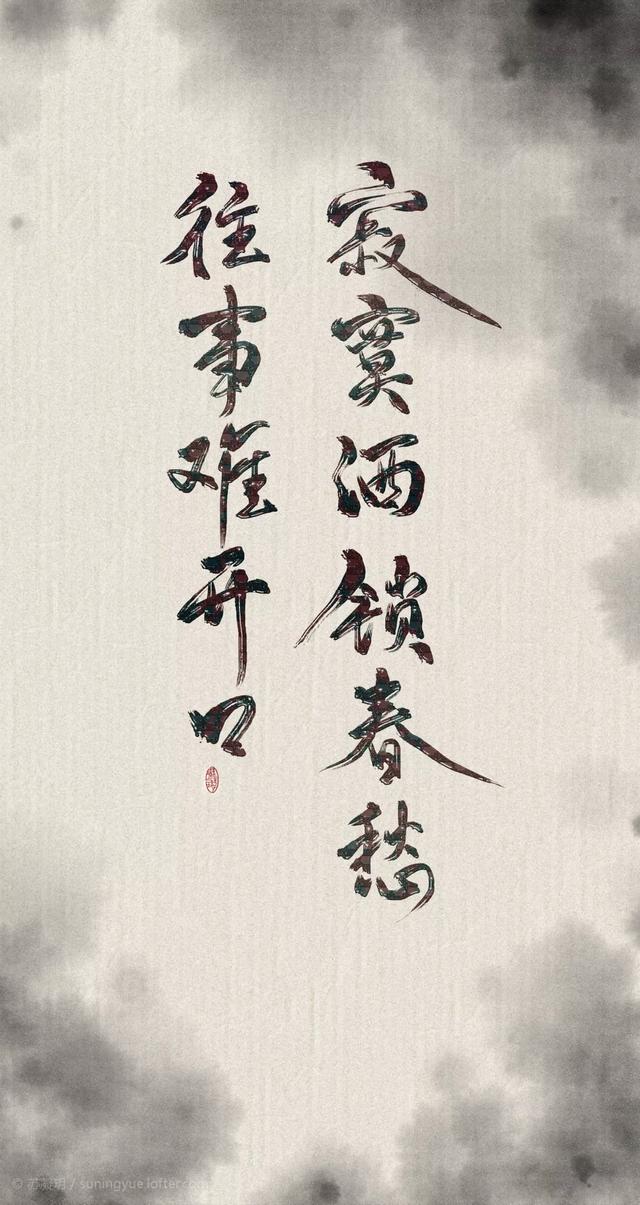 寂寞酒锁春愁
往事难开口
© 苏凝玥 / suningyue.lofter.com